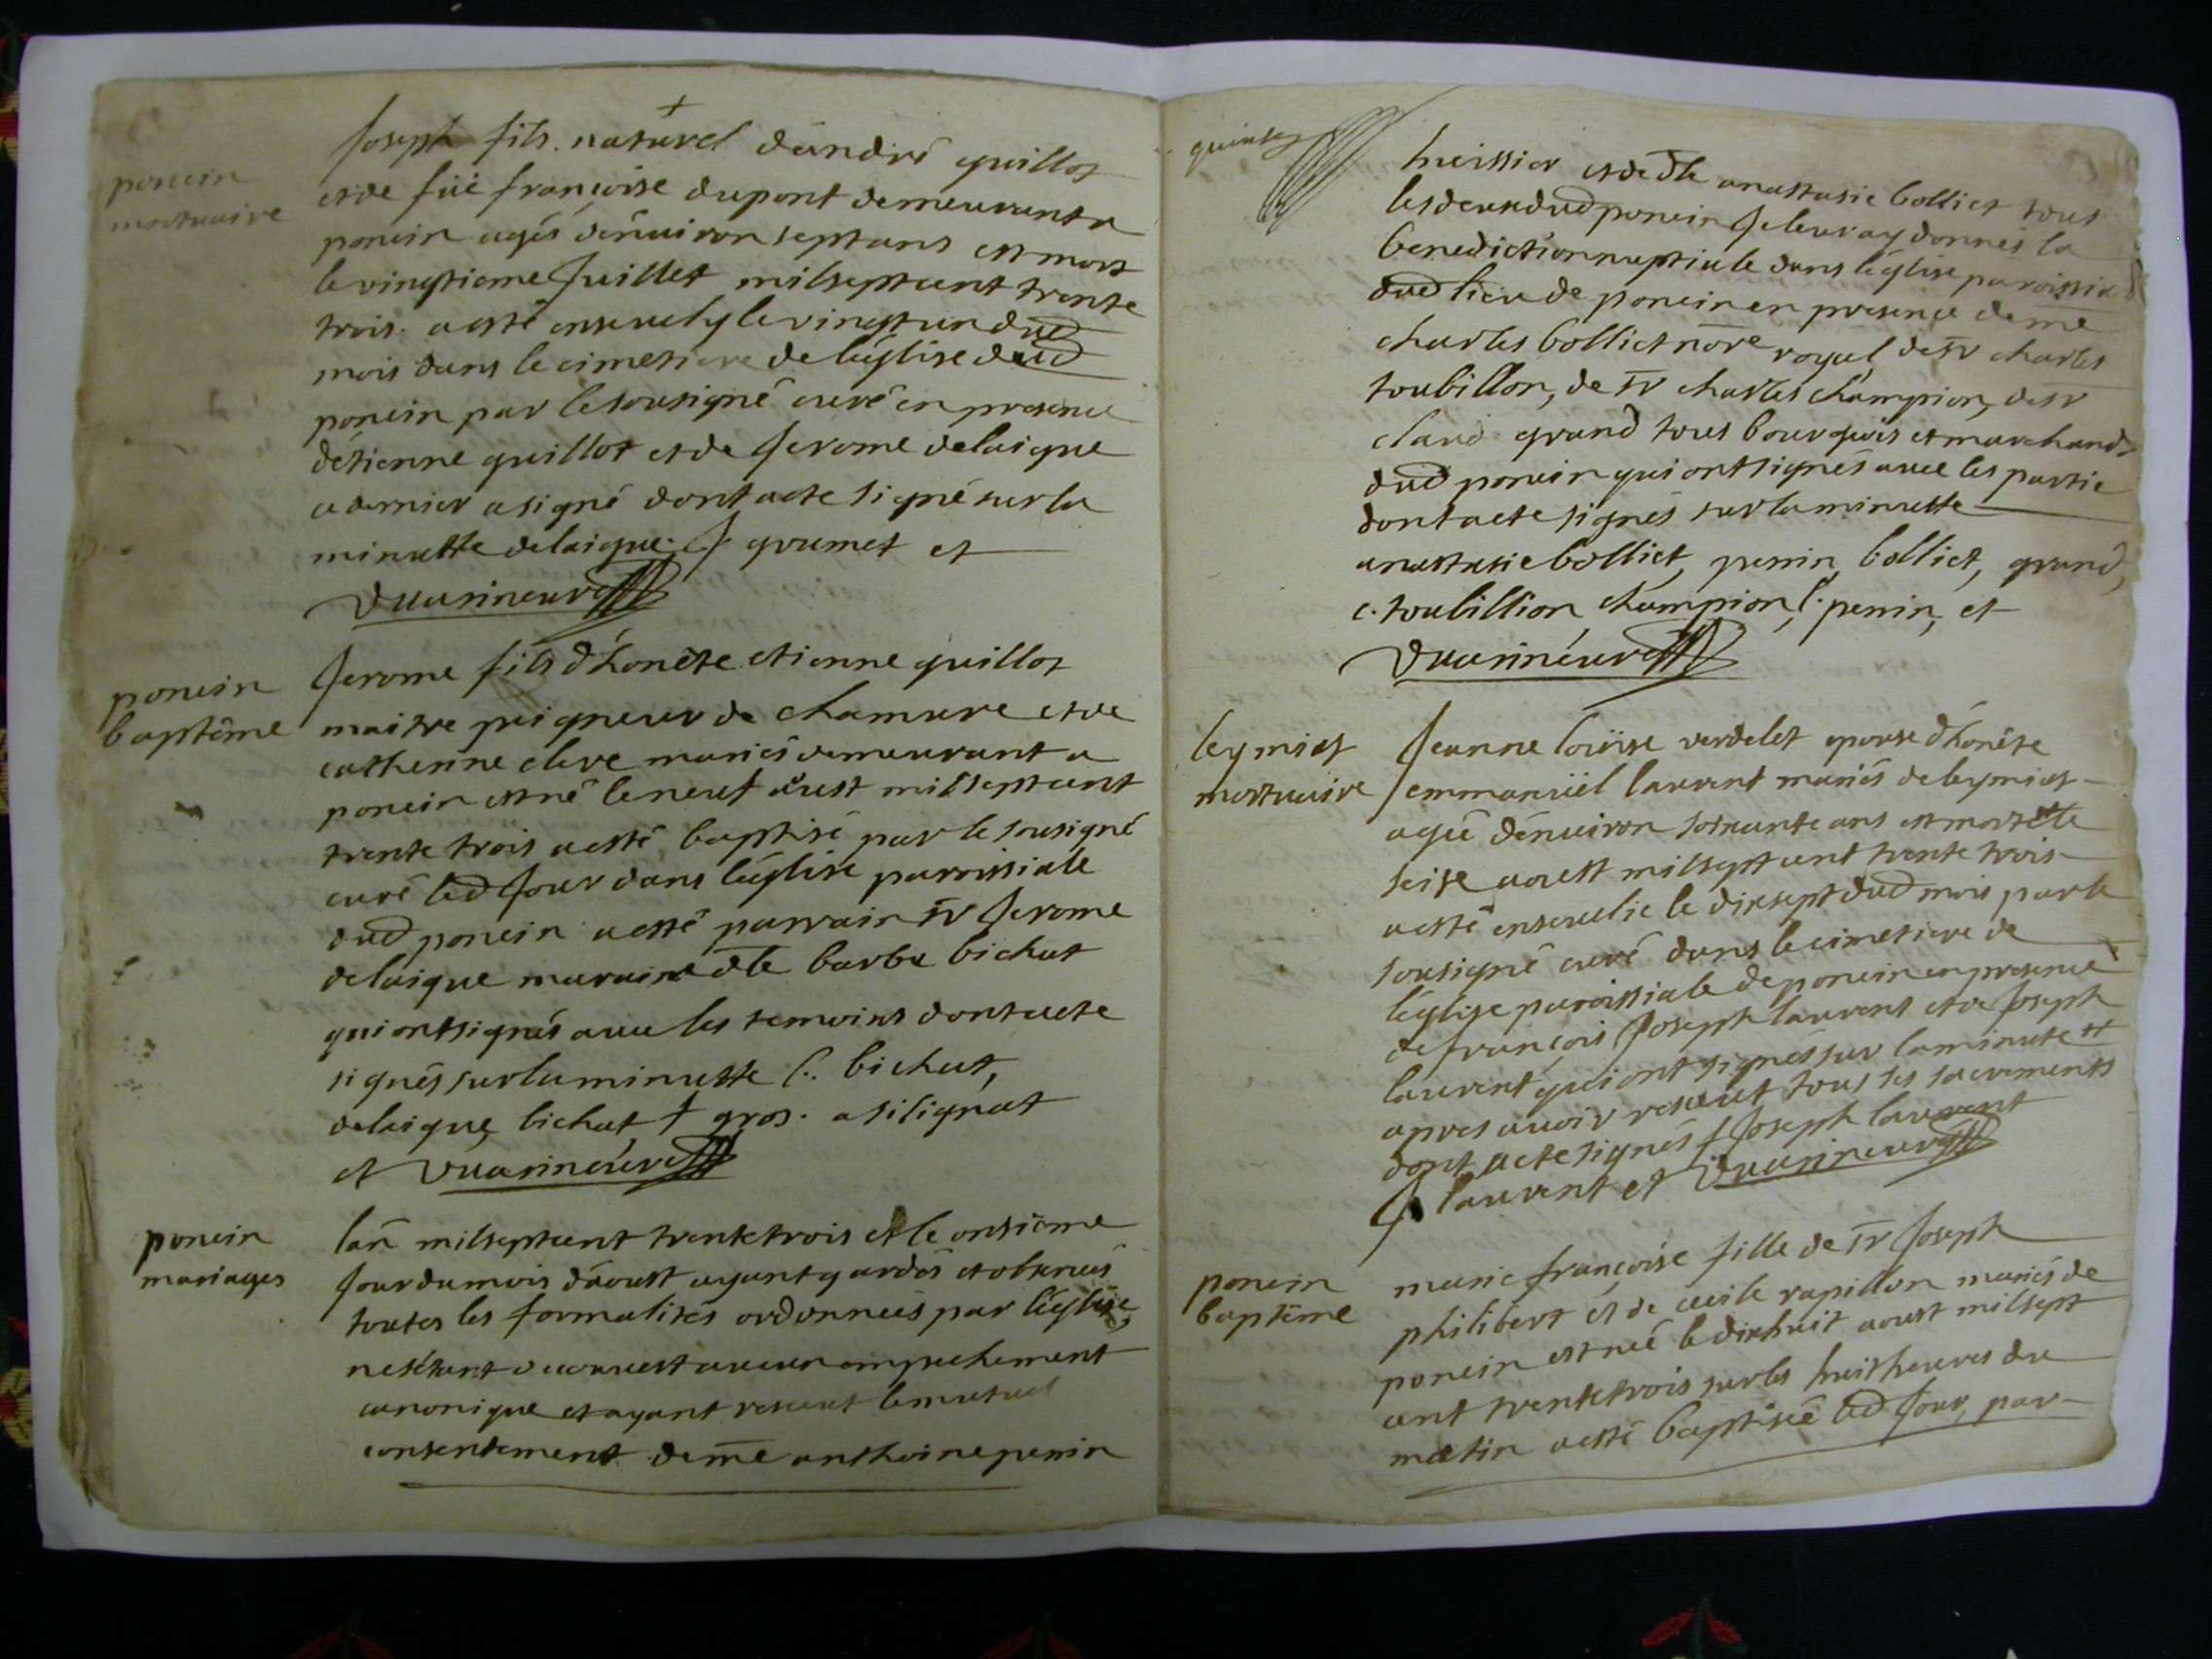 poncin
mortuaire
Joseph fils naturel d'andré guillot
et de füe françoise dupont demeurant a
poncin agés dénuiron sept ans est mort
le vingtieme Juillet mil sept cent trente
trois a esté enseuely le vingt un dud
mois dans le cimetiere de l'église dud
poncin par le sousigné curé en presence
d'étienne guillot et de Jerome delaigue
ce dernier a signé dont acte signé sur la
minutte delaigue. J grumet et
Duarineure
poncin
baptême
Jerome fils d'honête etienne guillot
maitre peigneur de chamure et de
catherine clere mariés demeurant a
poncin est né le neuf aust mil sept cent
trente trois a esté baptisé par le sousigné
curé led Jour dans l'église paroissiale
dud poncin a esté parrain sr Jerome
delaigue maraine dlle barbe bichat
qui ont signés auec les temoins dont acte
signés sur la minutte b. bichat,
delaigue, bichat, f gros. asilignat
et Duarineure
poncin
mariages
lan mil sept cent trente trois et le onsieme
Jour du mois d'aoust ayant gardés et obserués
toutes les formalités ordonnées par l'église,
ne s'étant decouuert aucun empechement
canonique et ayant receut le mutuel
consentement de me anthoine penin
quinse
huissier et de dlle anastasie bolliet tous
les deux dud poncin Je leur ay donnés la
benediction nuptiale dans l'église paroissia
dud lieu de poncin en presence de me
charles bolliet nore royal, de sr charles
toubillon, de sr charles champion, de sr
claud grand tous bourgois et marchand
dud poncin qui ont signés auec les partie
dont acte signés sur la minutte
anastasie bolliet, penin, bolliet, grand,
c. toubillion, champion, penin, et
Duarineure
leymiat
mortuaire
Jeanne loüise verdelet epouse d'honête
emmanuël laurent mariés de leymiat
agée dénuiron soixante ans est morte le
seise aoust mil sept cent trente trois
a esté enseuelie le dixsept dud mois par le
sousigné curé dans le cimetiere de
l'église paroissiale de poncin en presence
de françois Joseph laurent et de Joseph
laurent qui ont signés sur la minute et
apres auoir receut tous ses sacrements
dont acte signés f Joseph laurent
J laurent et Duarineure
poncin
baptême
marie françoise fille de sr Joseph
philibert et de cecile rapillon mariés de
poncin est née le dixhuit aoust mil sept
cent trente trois sur les huit heures du
matin a esté baptisée led Jour, par